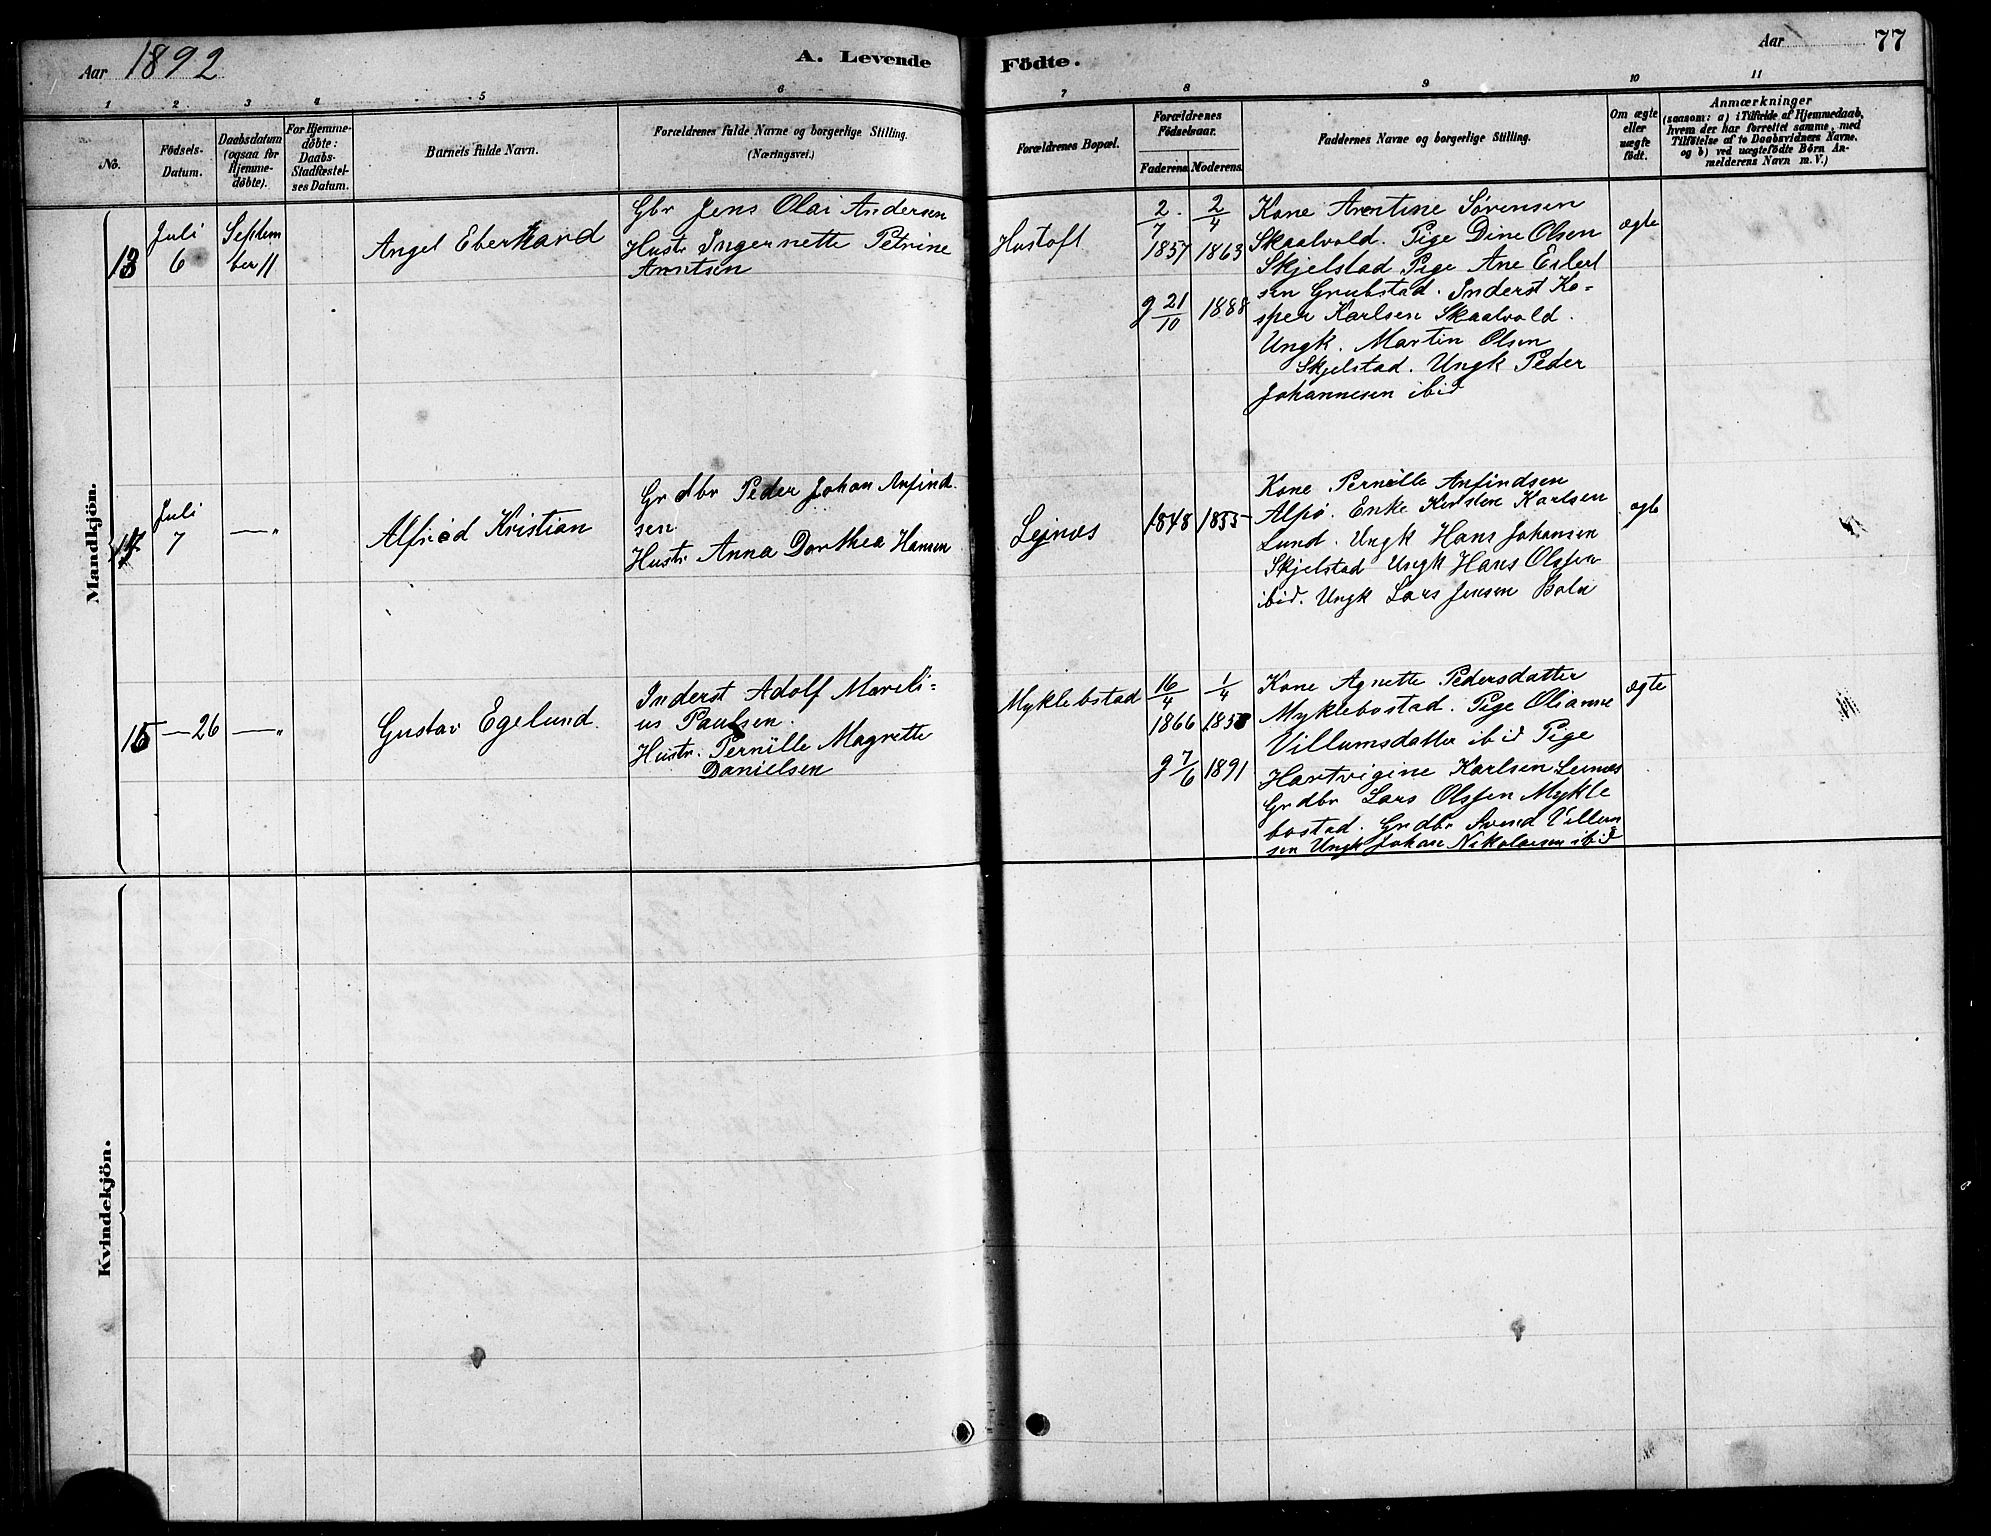 Aar 1892
A. Levende
Födte.
Aar 77
1 2 3 4 5 6 7 8 9 10 11
No.
Födsels-
Datum.
Daabsdatum
(ogsaa for
Hjemme-
døbte).
For Hjemme-
døbte:
Daabs-
Stadfæstel-
ses Datum.
Barnets fulde Navn.
Forældrenes fulde Navne og borgerlige Stilling.
(Næringsvei.)
Forældrenes Bopæl.
Forældrenes
Födselsaar.
Faderens. Moderens.
Faddernes Navne og borgerlige Stilling.
Om ægte
eller
uægte
födt.
Anmærkninger
(saasom: a) i Tilfælde af Hjemmedaab,
hvem der har forrettet samme, med
Tilföielse af to Daabsvidners Navne,
og b) ved uægtefödte Börn An-
melderens Navn m. V.)
Mandkjön.
13
Juli
6
Septem
ber 11
Angel Eberhard
Gbr Jens Olai Andersen
Hustr Ingernette Petrine
Arntsen
Hustoft
2/7
1857
2/4
1863
g 21/10 1888
Kone Arntine Sørensen
Skaalvold. Pige Dine Olsen
Skjelstad Pige Ane Eilert
sen Grubstad. Inderst Ka-
sper Karlsen Skaalvold.
Ungk. Martin Olsen
Skjelstad. Ungk Peder
Johannesen ibid
ægte
Juli
7
—"
Alfred Kristian
Grdbr Peder Johan Anfind
sen
Hustr Anna Dorthea Hansen
Lejnæs
1848 1855
Kone Pernille Anfindsen
Alpø. Enke Kirsten Karlsen
Lund. Ungk Hans Johansen
Skjelstad Ungk Hans Olsen
ibid. Ungk Lars Jensen
ægte
15
—26
—"
Gustav Egelund.
Inderst Adolf Mareli=
us Paulsen.
Hustr. Pernille Magrette
Danielsen
Myklebostad
16/4
1866
1/4
g 7/6 1891
Kone Agnette Pedersdatter
Myklebostad. Pige Olianne
Villumsdatter ibid Pige
Hartvigine Karlsen Leinæs
Grdbr Lars Olsen Mykle
bostad. Grdbr Svend Villum
sen Ungk Johan Nikolaisen ibid
ægte
Kvindekjön.